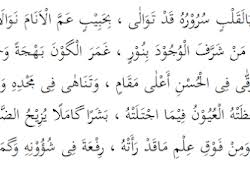 بِالْقَلْبِ سُرُوْرُهُ قَدْ تَوَالَى ، بِحَبِيْبٍ عَمَّ الْأَنَامَ نَوَالَا
مَنْ شَرَّفَ الْوُجُوْدَ بِنُوْرٍ ، غَمَرَ الْكَوْنَ بَهْجَةً وَ
فِى الْحُسْنِ أَعْلَى مَقَامٍ ، وَتَنَاهَى فِى مَجْدِهِ وَ
الْعُيُوْنُ فِيْمَا اجْتَلَتْهُ ، بَشَرًا كَامِلًا يُزِيْحُ
وَمِنْ فَوْقِ عِلْمِ مَاقَدْ رَأَتْهُ ، رِفْعَةً فِى شُؤُوْنِهِ